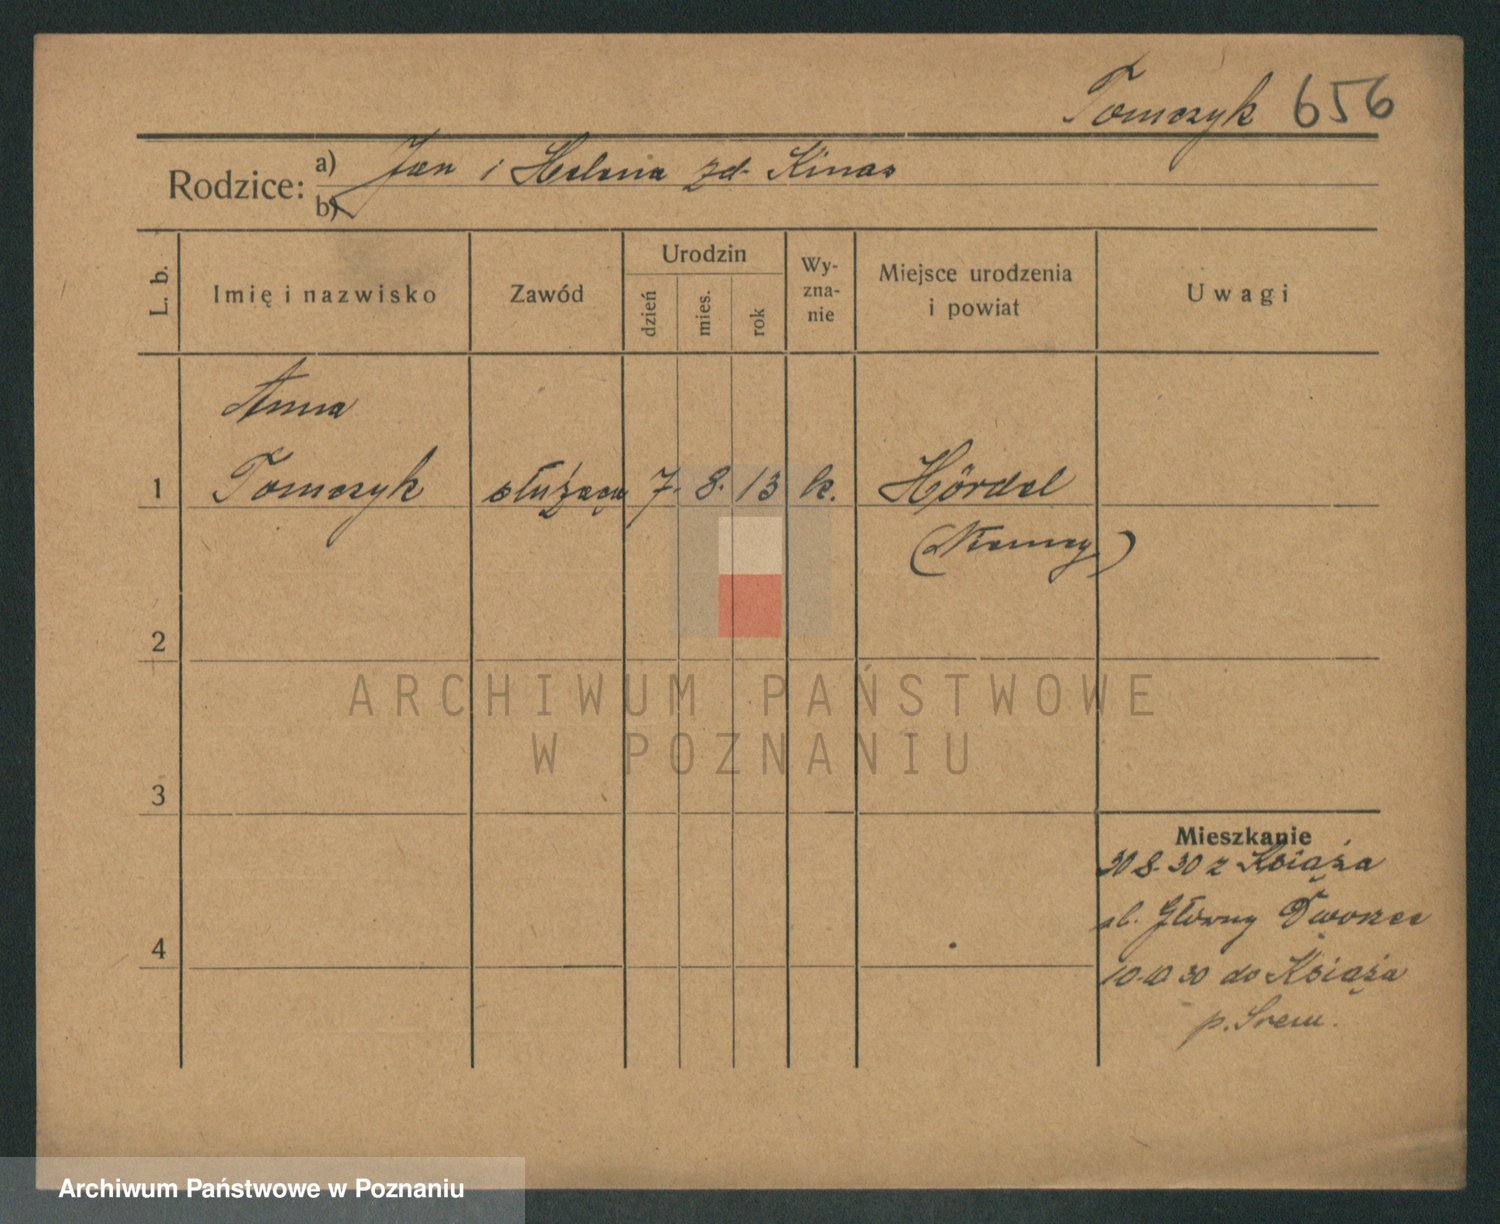 Tomczyk 656
Rodzice: a) Jan i Helena zd. Kinas
b)
L. b.
Imię i nazwisko
Zawód
Urodzin
dzień
mies.
rok
Wy-
zna-
nie
Miejsce urodzenia
i powiat
Uwagi
Anna
1 Tomczyk służąca 7. 8. 13 k. Hördel
(Niemcy)
2
3
4
Mieszkanie
30 8. 30 z Książa
ul. Główny Dworzec
10.10 30 do Książa
p. Śrem.
ARCHIWUM PAŃSTWOWE
W POZNANIU
Archiwum Państwowe w Poznaniu